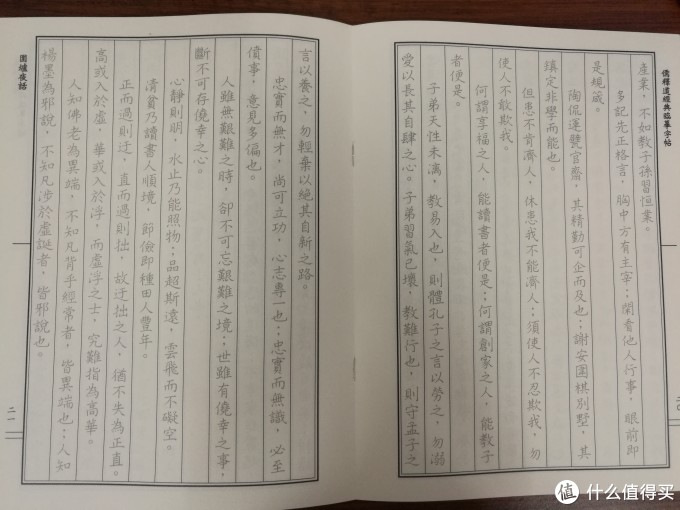 儒釋道經典臨摹字帖
產業，不如教子孫習恒業。
多記先正格言，胸中方有主宰；閑看他人行事，眼前即
是規箴。
陶侃運甓官齋，其精勤可企而及也；謝安圍棋別墅，其
鎮定非學而能也。
但患不肯濟人，休患我不能濟人；須使人不忍欺我，勿
使人不敢欺我。
何謂享福之人，能讀書者便是；何謂創家之人，能教子
者便是。
子弟天性未漓，教易入也，則體孔子之言以勞之，勿溺
愛以長其自肆之心。子弟習氣已壞，教難行也，則守孟子之
二〇
言以養之，勿輕棄以絕其自新之路。
忠實而無才，尚可立功，心志專一也；忠實而無識，必至
僨事，意見多偏也。
人雖無艱難之時，卻不可忘艱難之境；世雖有僥幸之事，
斷不可存僥幸之心。
心靜則明，水止乃能照物；品超斯遠，雲飛而不礙空。
清貧乃讀書人順境，節儉即種田人豐年。
正而過則迂，直而過則拙，故迂拙之人，猶不失為正直。
高或入於虛，華或入於浮，而虛浮之士，究難指為高華。
人知佛老為異端，不知凡背乎經常者，皆異端也；人知
楊墨為邪說，不知凡涉於虛誕者，皆邪說也。
圍爐夜話
二一
值 什么值得买